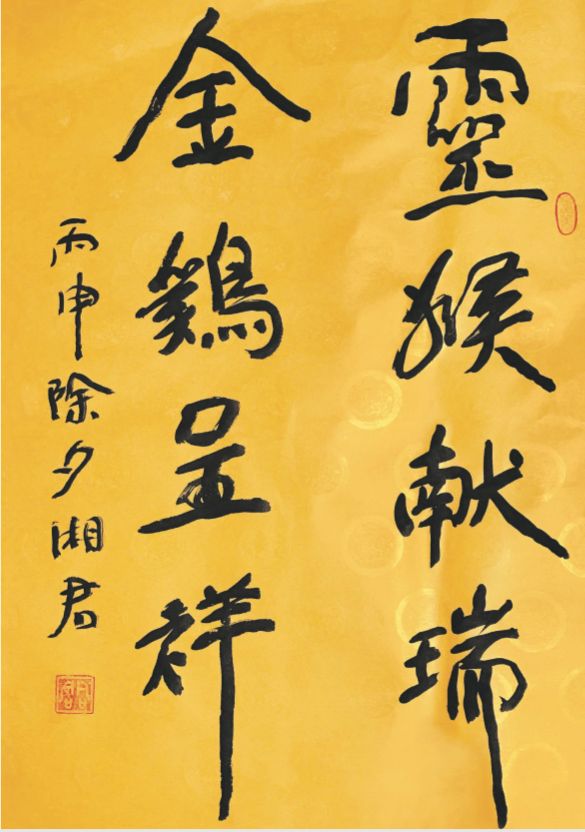 靈猴献瑞
金鷄呈祥
丙申除夕湘君